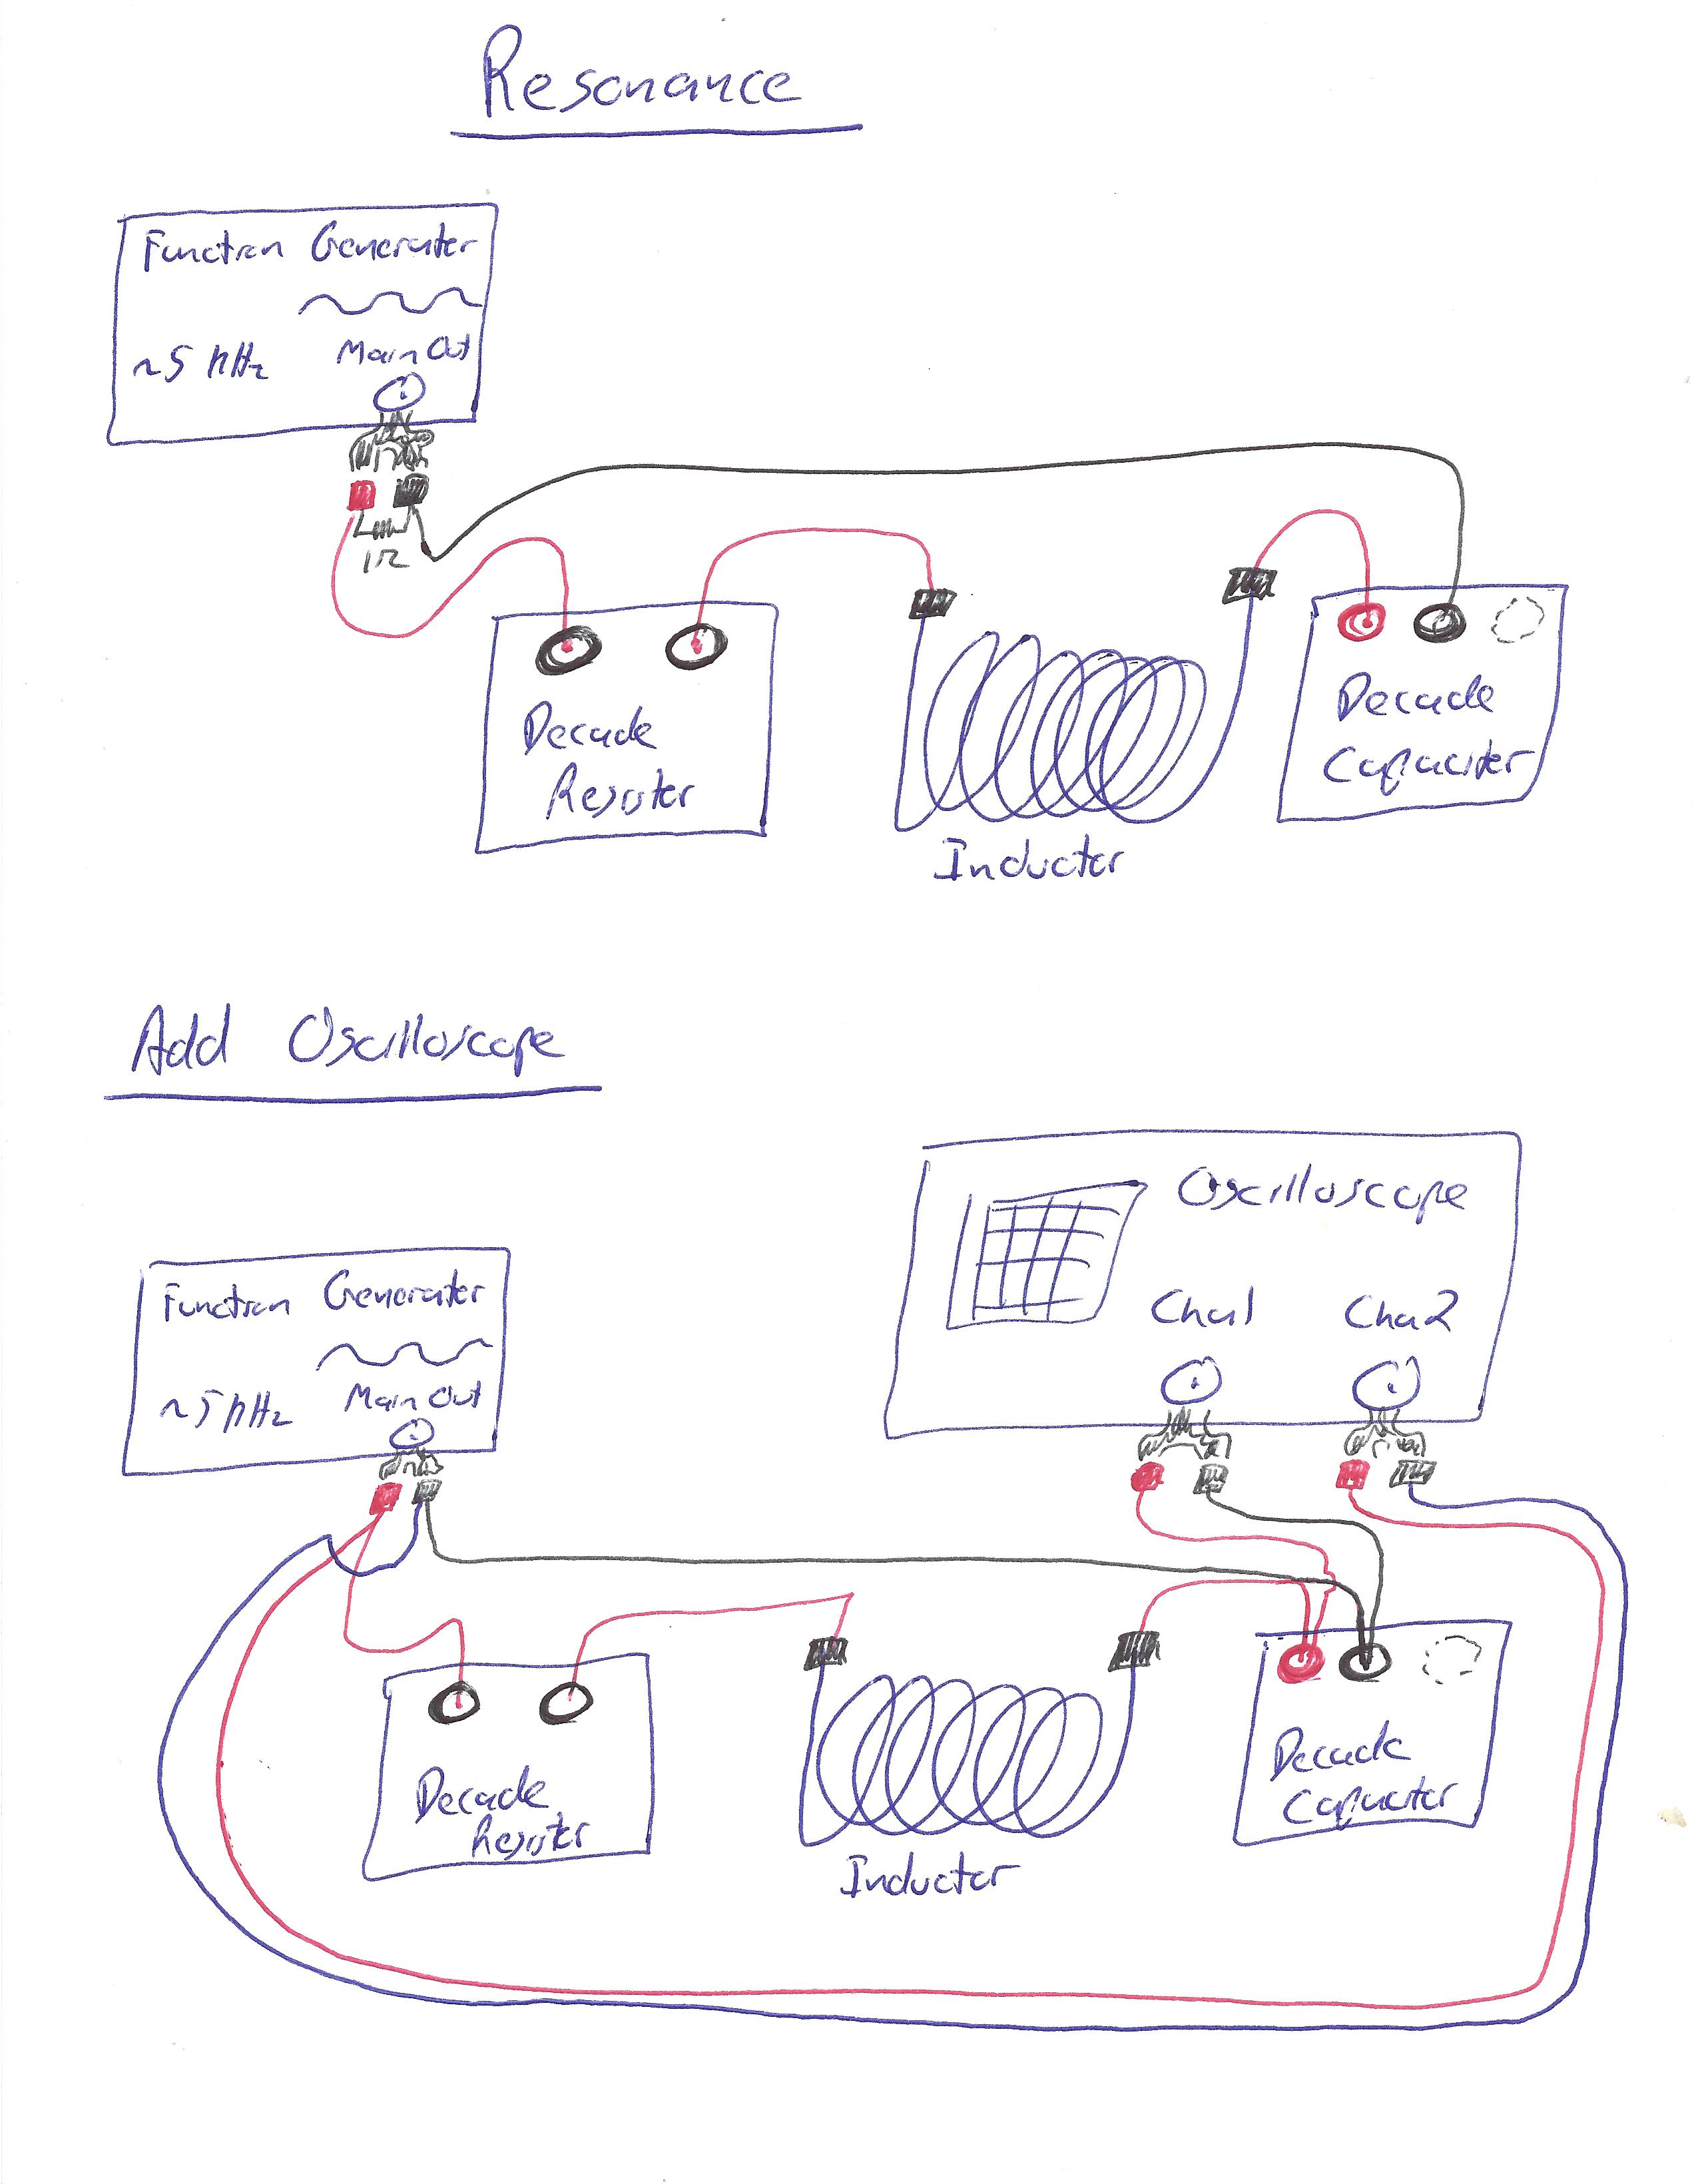 Resonance
Function Generator
~5 kHz
Main Out
1Ω
Decade
Resistor
Inductor
Decade
Capacitor
Add Oscilloscope
Oscilloscope
Cha1
Cha2
Function Generator
~5 kHz
Main Out
Decade
Resistor
Inductor
Decade
Capacitor